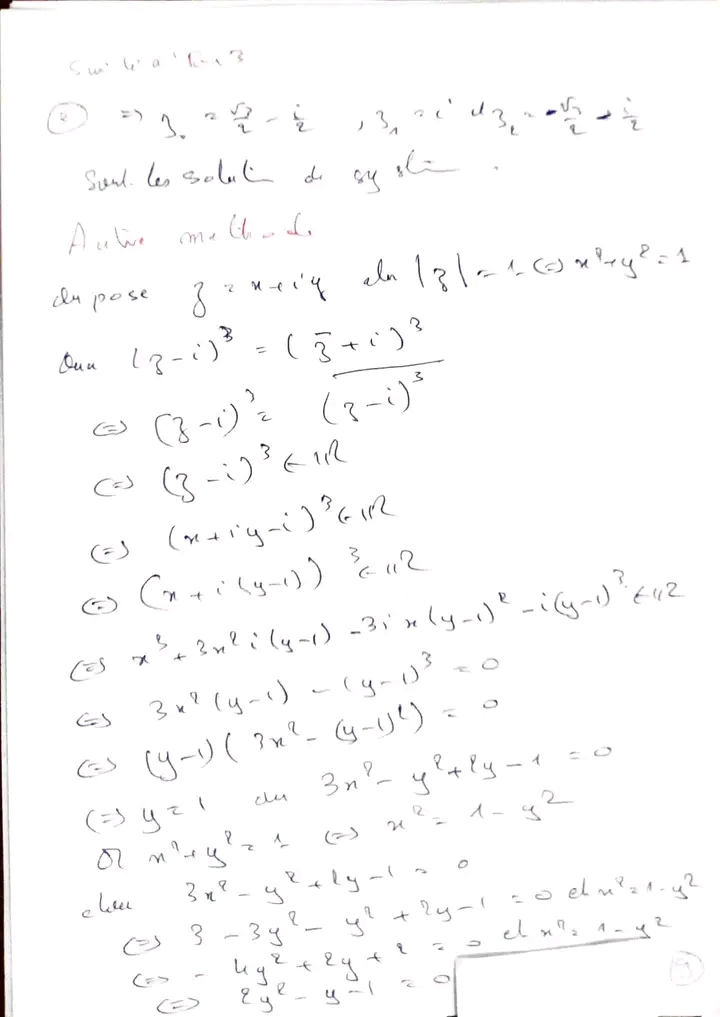 ② => z₀ = √3/2 - i/2 , z₁ = i et z₂ = -√3/2 - i/2
Sont les solution de systè
Autre méthode
On pose z = x+iy alr |z| = 1 <=> x²+y² = 1
Donc (z-i)³ = (z̅+i)³
<=> (z-i)³ = \overline{(z-i)}³
<=> (z-i)³ ∈ ℝ
<=> (x+iy-i)³ ∈ ℝ
<=> (x+i(y-1))³ ∈ ℝ
<=> x³+3x²i(y-1) - 3ix(y-1)² - i(y-1)³ ∈ ℝ
<=> 3x²(y-1) - (y-1)³ = 0
<=> (y-1)(3x² - (y-1)²) = 0
<=> y = 1 ou 3x² - y² + 2y - 1 = 0
Or x²+y² = 1 <=> x² = 1 - y²
3x² - y² + 2y - 1 = 0
<=> 3 - 3y² - y² + 2y - 1 = 0 et x² = 1 - y²
<=> - 4y² + 2y + 2 = 0 et x² = 1 - y²
<=> 2y² - y - 1 = 0